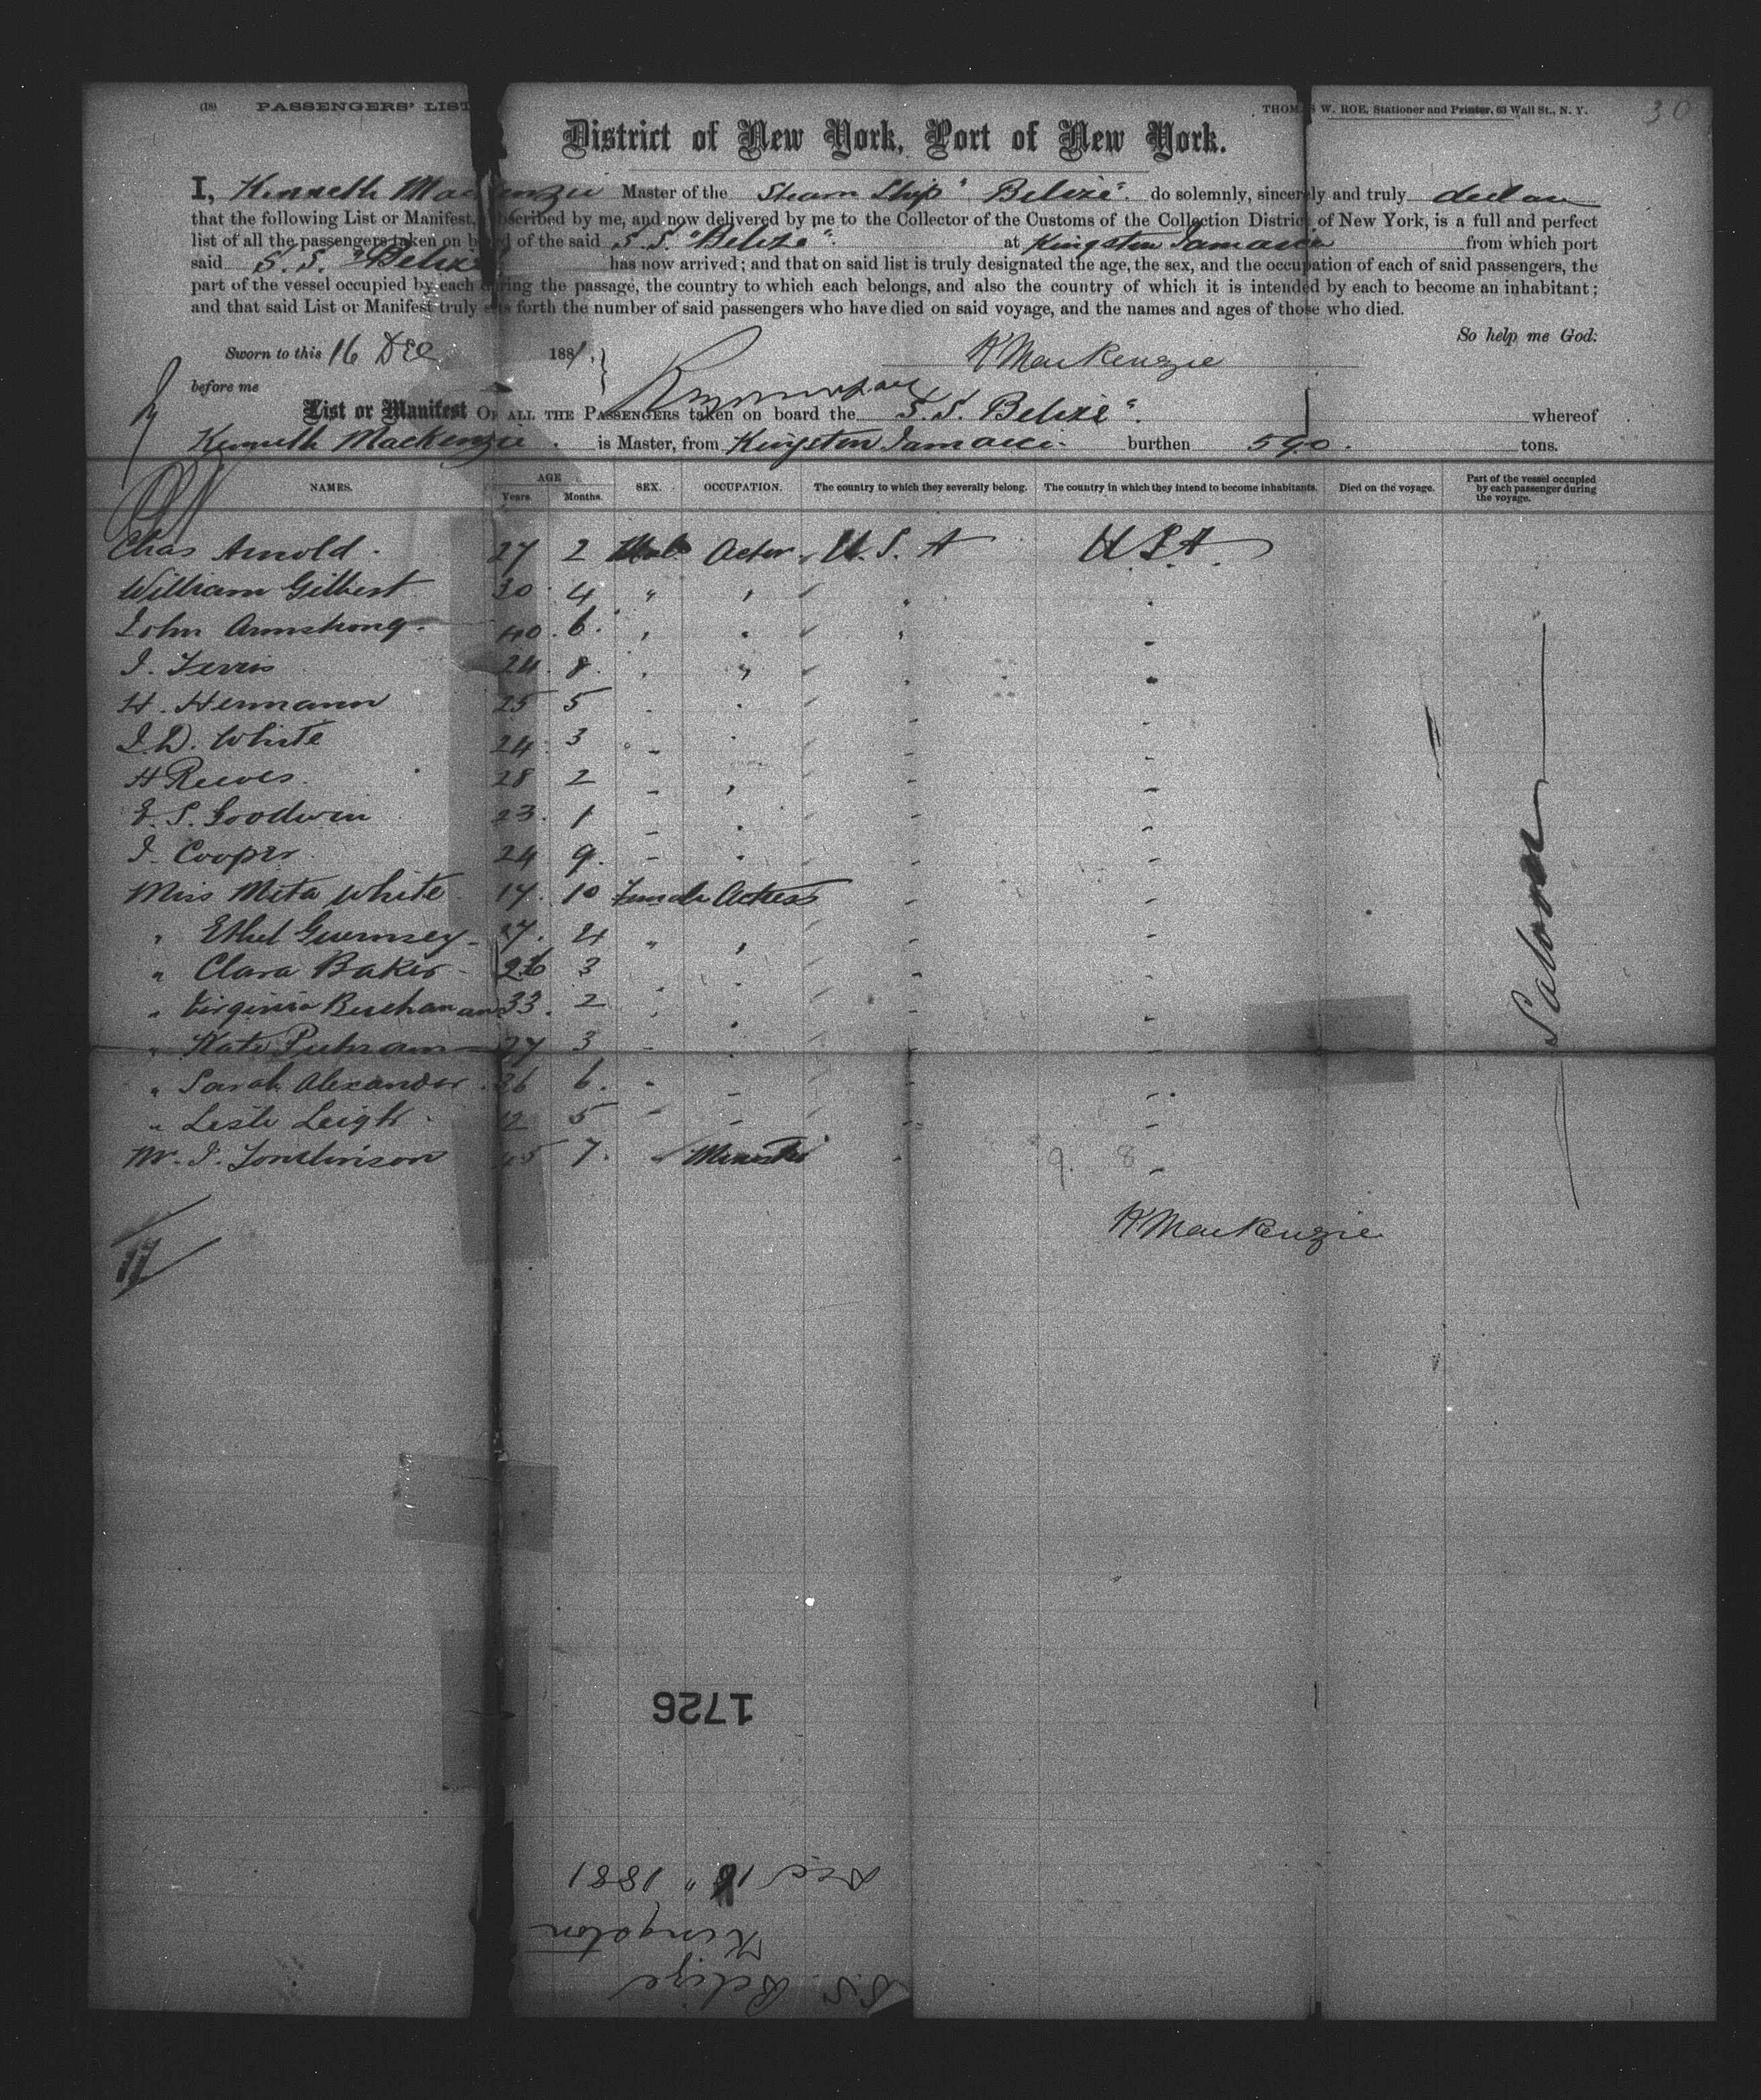 (18) PASSENGERS' LIST THOMAS W. ROE, Stationer and Printer, 63 Wall St., N. Y. 30
District of New York, Port of New York.
I, Kenneth Mackenzie Master of the Steam Ship "Belize" do solemnly, sincerely and truly declare
that the following List or Manifest, subscribed by me, and now delivered by me to the Collector of the Customs of the Collection District of New York, is a full and perfect
list of all the passengers taken on board of the said S.S. "Belize" at Kingston Jamaica from which port
said S.S. "Belize" has now arrived; and that on said list is truly designated the age, the sex, and the occupation of each of said passengers, the
part of the vessel occupied by each during the passage, the country to which each belongs, and also the country of which it is intended by each to become an inhabitant;
and that said List or Manifest truly sets forth the number of said passengers who have died on said voyage, and the names and ages of those who died.
So help me God:
Sworn to this 16 Dec 1881, K MacKenzie
before me
List or Manifest OF ALL THE PASSENGERS taken on board the S.S. Belize". whereof
Kenneth Mackenzie. is Master, from Kingston Jamaica. burthen 590. tons.
NAMES. AGE Years. Months. SEX. OCCUPATION. The country to which they severally belong. The country in which they intend to become inhabitants. Died on the voyage. Part of the vessel occupied by each passenger during the voyage.
Chas Arnold. 27 2 Male Actor U.S.A U.S.A
William Gilbert 30 4 " "
John Armstrong. 40 6. " "
J. Ferris 24 8. " "
H. Hermann 25 5
J.D. White 24 3
H Reeves. 28 2
E. S. Goodwin 23. 1
J. Cooper 24 9.
Miss Meta White 17. 10 Female Actress
" Ethel Guernsey 27. 4 " "
" Clara Baker 26 3
" Virginia Buchanan 33. 2
" Kate Putnam 27 3
" Sarah Alexander. 36 6.
" Leslie Leigh. 12 5
Mr. J. Tomlinson 45 7. Minister
Saloon
9. 8
K MacKenzie
17
1726
S.S. Belize
Kingston
Dec 16" 1881